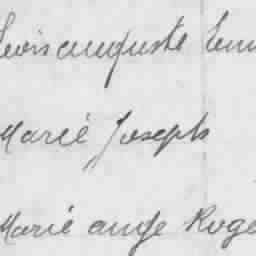 Louis auguste
Marie Joseph
Marie ange Roge